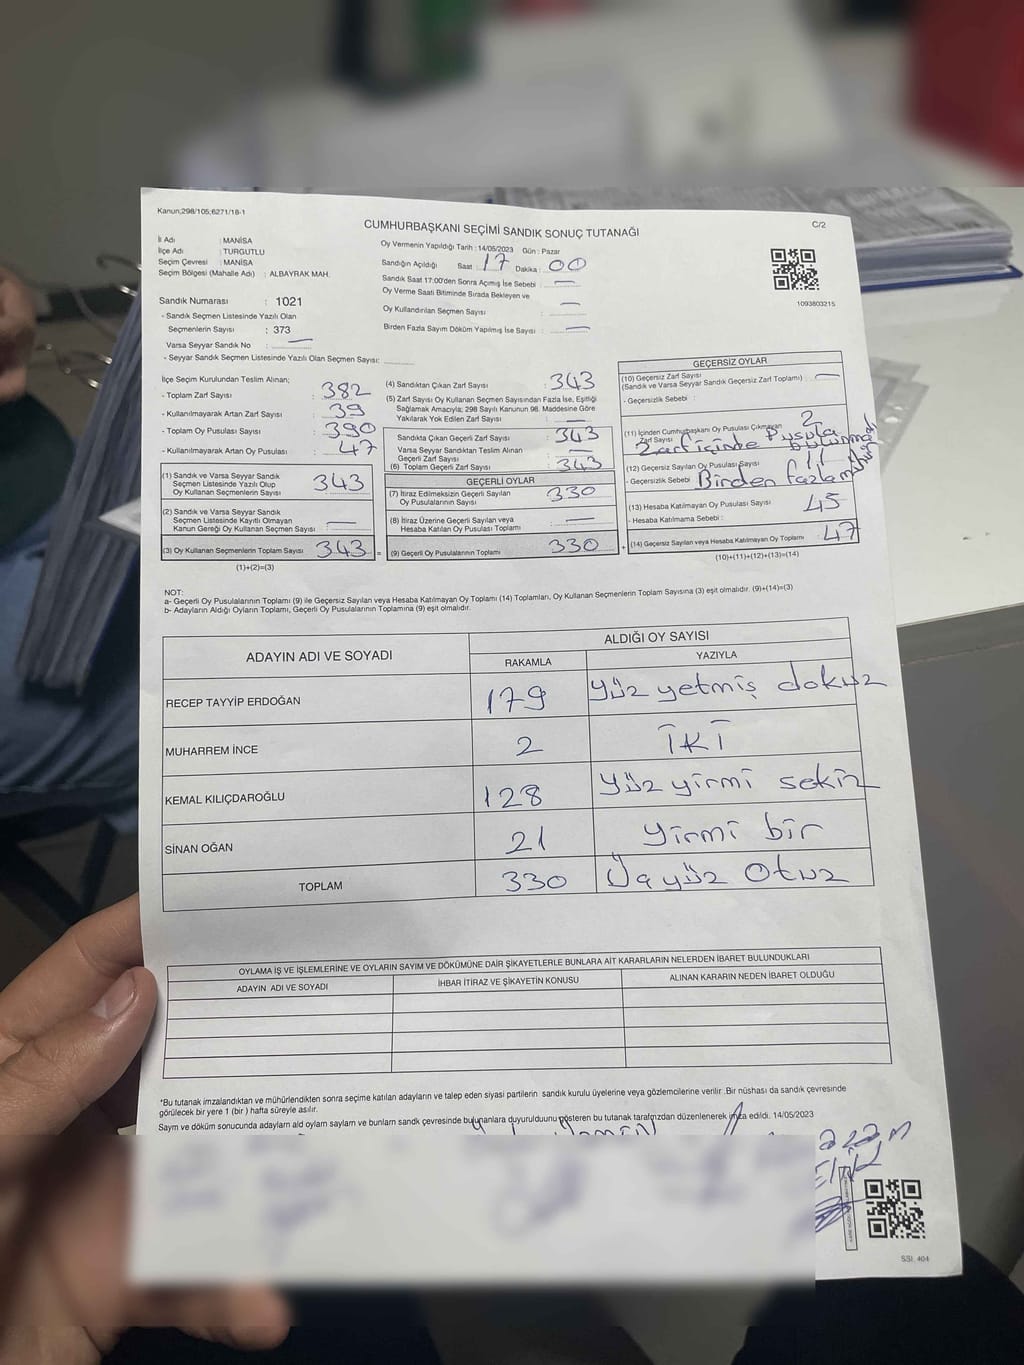 Kanun;298/105;6271/18-1
C/2
CUMHURBAŞKANI SEÇİMİ SANDIK SONUÇ TUTANAĞI
İl Adı : MANİSA
İlçe Adı : TURGUTLU
Seçim Çevresi : MANİSA
Seçim Bölgesi (Mahalle Adı) : ALBAYRAK MAH.
Sandık Numarası : 1021
- Sandık Seçmen Listesinde Yazılı Olan
Seçmenlerin Sayısı : 373
Varsa Seyyar Sandık No :
- Seyyar Sandık Seçmen Listesinde Yazılı Olan Seçmen Sayısı:
Oy Vermenin Yapıldığı Tarih : 14/05/2023 Gün : Pazar
Sandığın Açıldığı Saat : 17 Dakika : 00
Sandık Saat 17:00'den Sonra Açımış İse Sebebi :
Oy Verme Saati Bitiminde Sırada Bekleyen ve
Oy Kullandırılan Seçmen Sayısı :
Birden Fazla Sayım Döküm Yapılmış İse Sayısı :
1093803215
İlçe Seçim Kurulundan Teslim Alınan;
- Toplam Zarf Sayısı : 382
- Kullanılmayarak Artan Zarf Sayısı : 39
- Toplam Oy Pusulası Sayısı : 390
- Kullanılmayarak Artan Oy Pusulası : 47
(1) Sandık ve Varsa Seyyar Sandık
Seçmen Listesinde Yazılı Olup
Oy Kullanan Seçmenlerin Sayısı 343
(2) Sandık ve Varsa Seyyar Sandık
Seçmen Listesinde Kayıtlı Olmayan
Kanun Gereği Oy Kullanan Seçmen Sayısı
(3) Oy Kullanan Seçmenlerin Toplam Sayısı 343 =
(1)+(2)=(3)
(4) Sandıktan Çıkan Zarf Sayısı : 343
(5) Zarf Sayısı Oy Kullanan Seçmen Sayısından Fazla İse, Eşitliği
Sağlamak Amacıyla; 298 Sayılı Kanunun 98. Maddesine Göre
Yakılarak Yok Edilen Zarf Sayısı :
Sandıkta Çıkan Geçerli Zarf Sayısı : 343
Varsa Seyyar Sandıktan Teslim Alınan
Geçerli Zarf Sayısı :
(6) Toplam Geçerli Zarf Sayısı : 343
GEÇERLİ OYLAR
(7) İtiraz Edilmeksizin Geçerli Sayılan
Oy Pusulalarının Sayısı : 330
(8) İtiraz Üzerine Geçerli Sayılan veya
Hesaba Katılan Oy Pusulası Toplamı
(9) Geçerli Oy Pusulalarının Toplamı 330 +
GEÇERSİZ OYLAR
(10) Geçersiz Zarf Sayısı
(Sandık ve Varsa Seyyar Sandık Geçersiz Zarf Toplamı) :
- Geçersizlik Sebebi :
(11) İçinden Cumhurbaşkanı Oy Pusulası Çıkmayan
Zarf Sayısı 2
Zarf içinde Pusula
(12) Geçersiz Sayılan Oy Pusulası Sayısı 11
- Geçersizlik Sebebi Birden fazla
(13) Hesaba Katılmayan Oy Pusulası Sayısı 45
- Hesaba Katılmama Sebebi :
(14) Geçersiz Sayılan veya Hesaba Katılmayan Oy Toplamı 47
(10)+(11)+(12)+(13)=(14)
NOT:
a- Geçerli Oy Pusulalarının Toplamı (9) ile Geçersiz Sayılan veya Hesaba Katılmayan Oy Toplamı (14) Toplamları, Oy Kullanan Seçmenlerin Toplam Sayısına (3) eşit olmalıdır. (9)+(14)=(3)
b- Adayların Aldığı Oyların Toplamı, Geçerli Oy Pusulalarının Toplamına (9) eşit olmalıdır.
ADAYIN ADI VE SOYADI ALDIĞI OY SAYISI
RAKAMLA YAZIYLA
RECEP TAYYİP ERDOĞAN 179 Yüz yetmiş dokuz
MUHARREM İNCE 2 İKİ
KEMAL KILIÇDAROĞLU 128 Yüz yirmi sekiz
SİNAN OĞAN 21 Yirmi bir
TOPLAM 330 Üçyüz Otuz
OYLAMA İŞ VE İŞLEMLERİNE VE OYLARIN SAYIM VE DÖKÜMÜNE DAİR ŞİKAYETLERLE BUNLARA AİT KARARLARIN NELERDEN İBARET BULUNDUKLARI
ADAYIN ADI VE SOYADI İHBAR İTİRAZ VE ŞİKAYETİN KONUSU ALINAN KARARIN NEDEN İBARET OLDUĞU
*Bu tutanak imzalandıktan ve mühürlendikten sonra seçime katılan adayların ve talep eden siyasi partilerin sandık kurulu üyelerine veya gözlemcilerine verilir .Bir nüshası da sandık çevresinde
görülecek bir yere 1 (bir ) hafta süreyle asılır.
Sayım ve döküm sonucunda adayları aldı oyları sayları ve bunların sandık çevresinde bulunanlara duyurulduunu gösteren bu tutanak tarafmzdan düzenlenerek imza edildi. 14/05/2023
SSI. 404